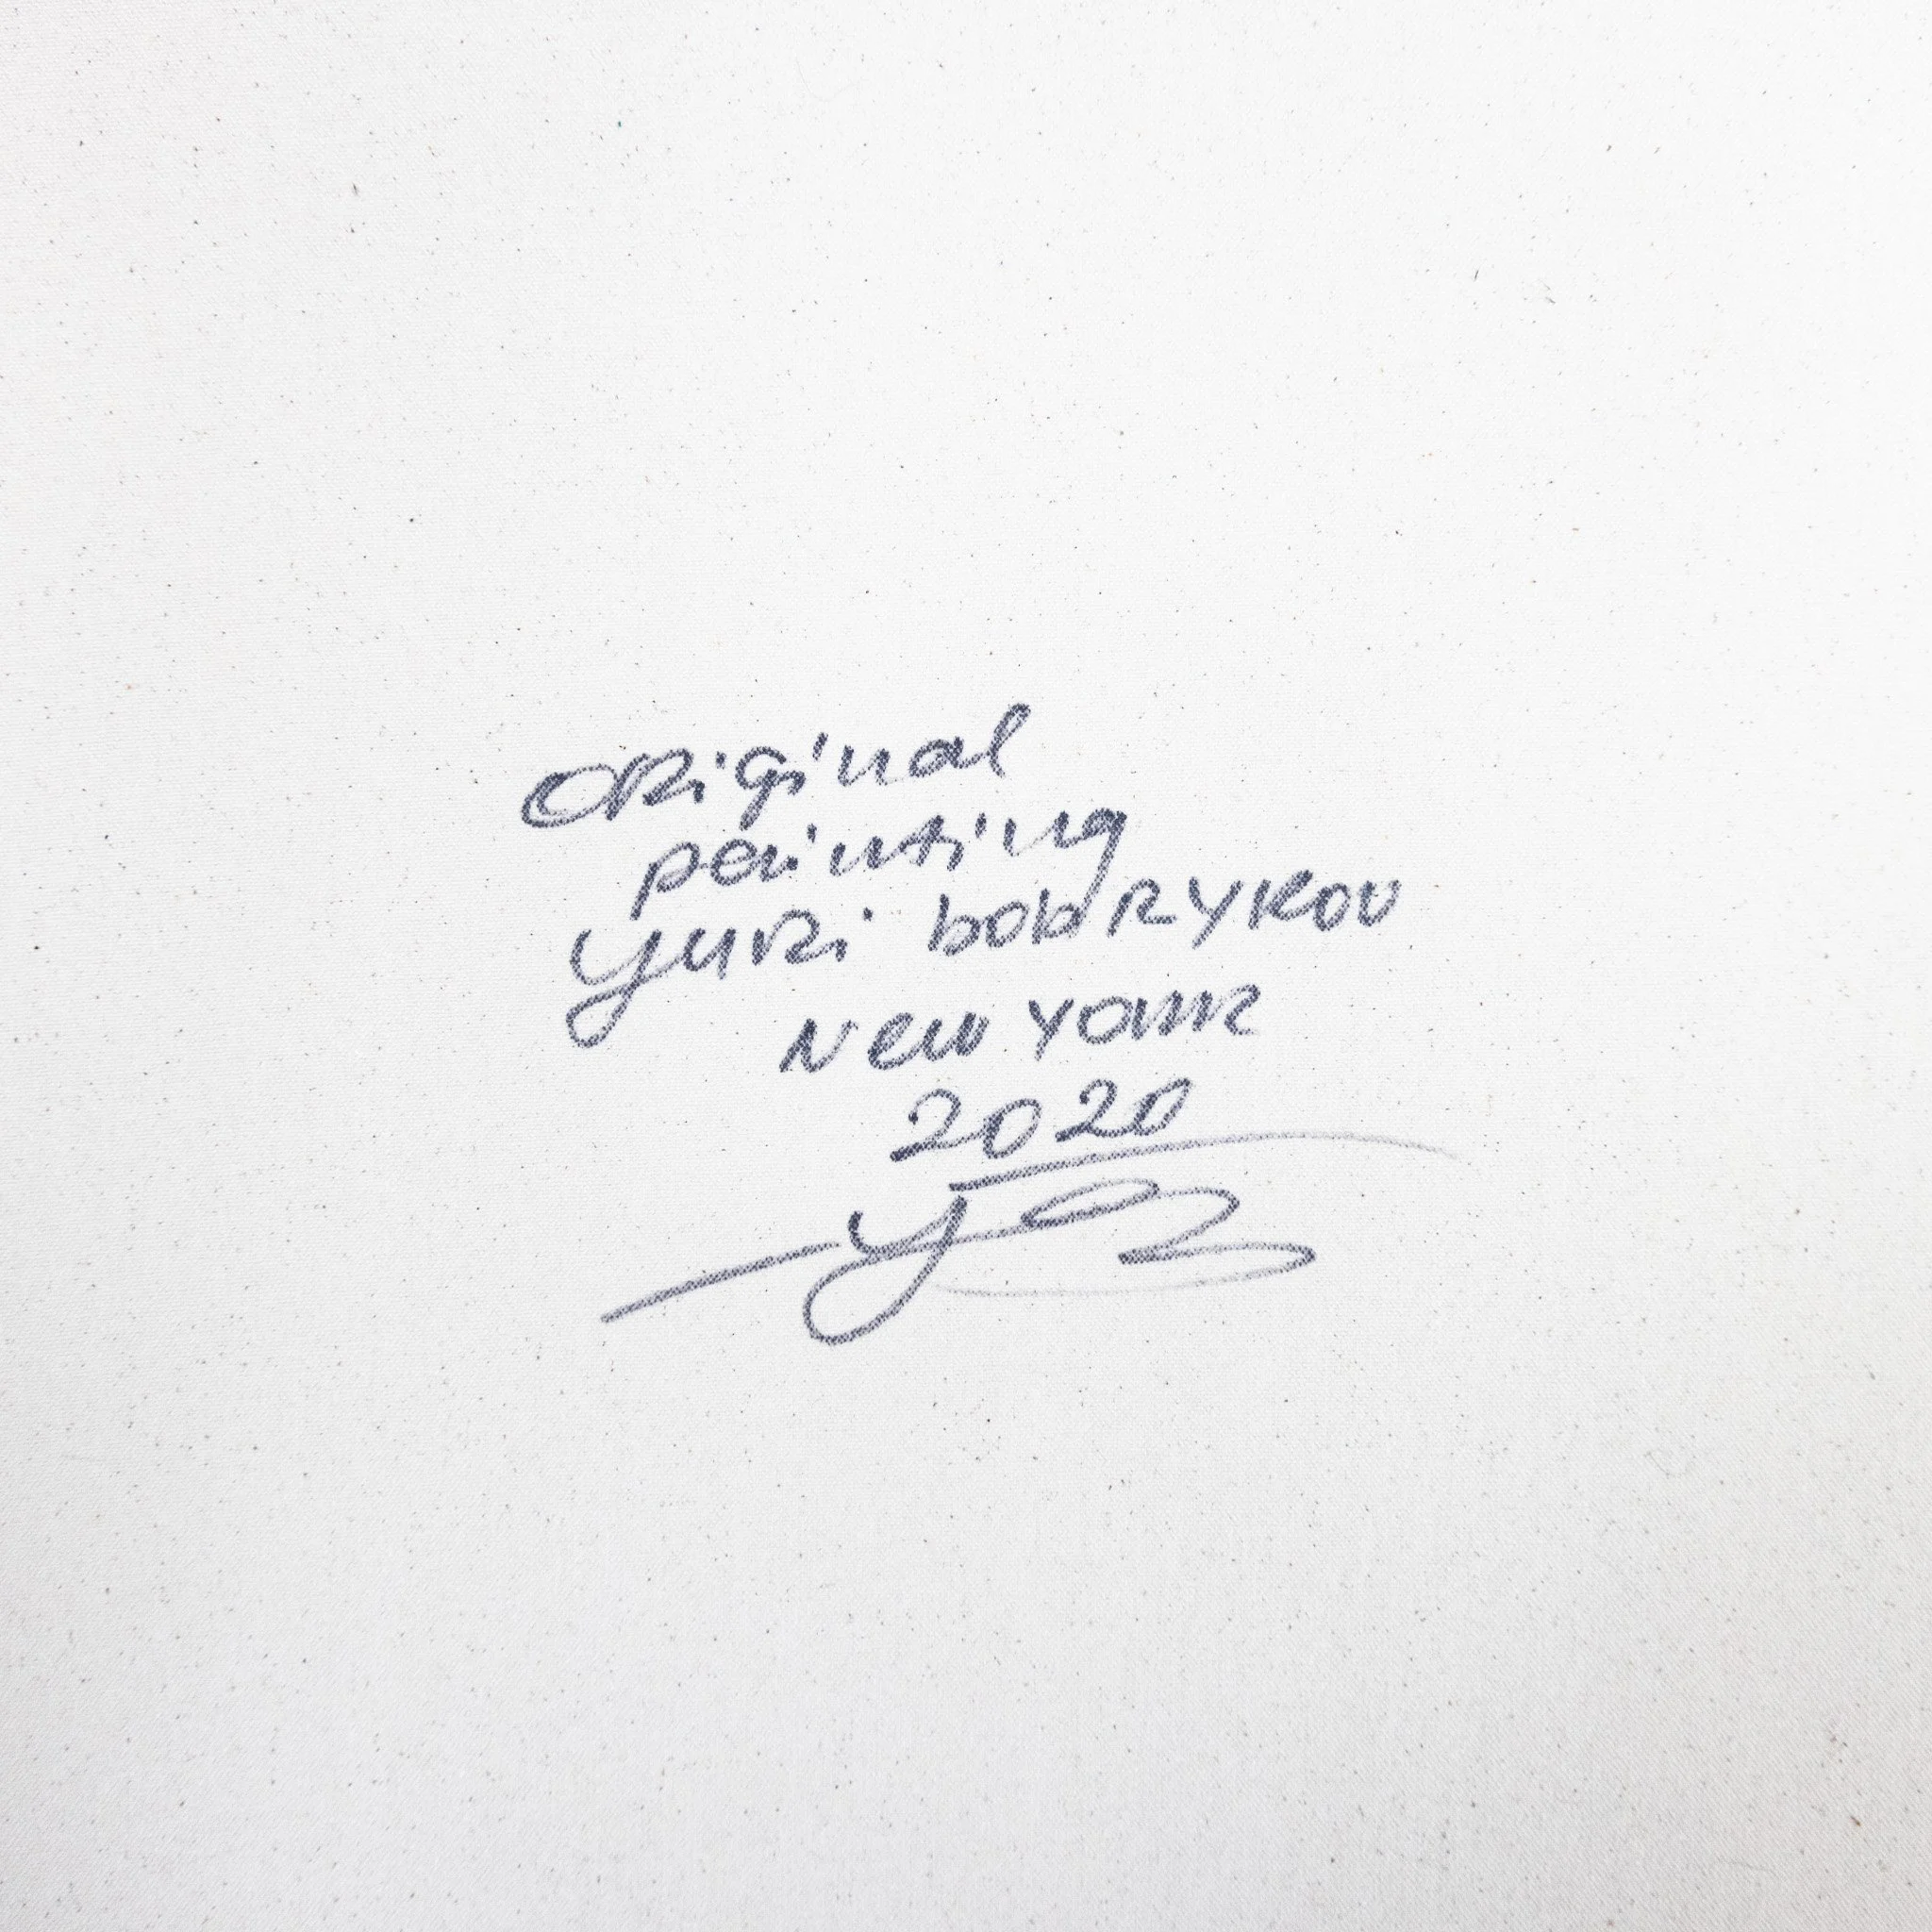 Original
painting
Yuri bobRYKOV
New YORK
2020